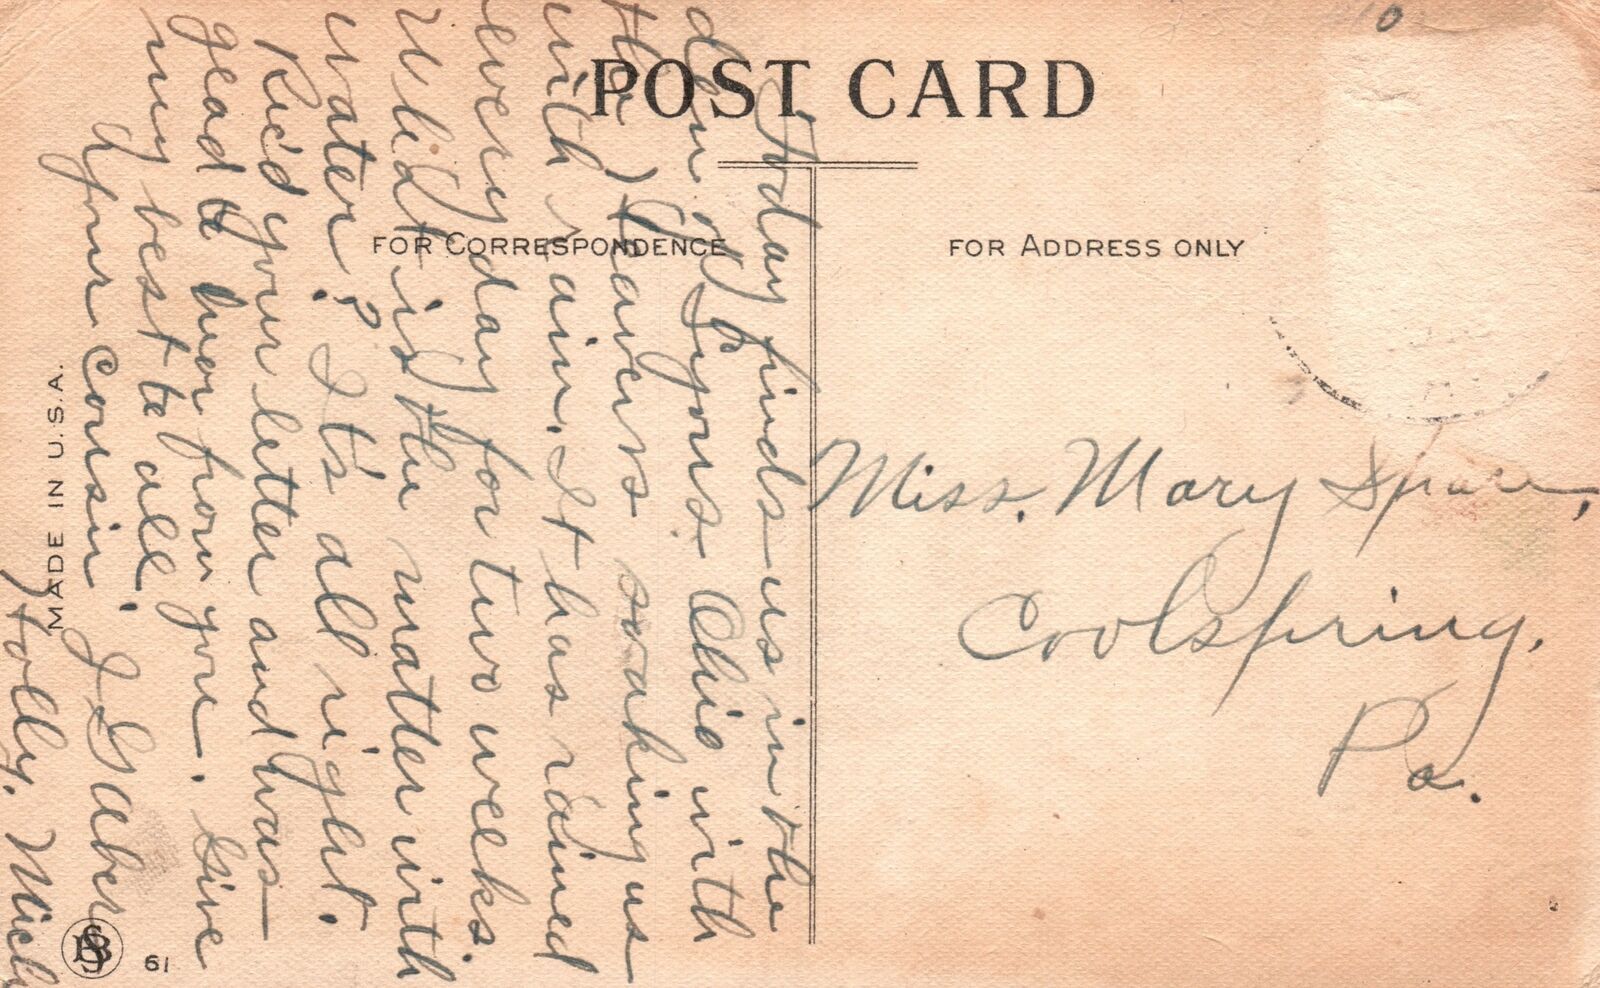 POST CARD
FOR CORRESPONDENCE
FOR ADDRESS ONLY
Today finds us in the
den of Lyons Ohio with
the heavens soaking us
with rain. It has rained
every day for two weeks.
What is the matter with
water? It's all right.
Rec'd your letter and was
glad to hear from you. Give
my best to all.
Your cousin
J G Gaber
Holly, Mich
Miss. Mary
Coolspring,
Pa.
MADE IN U.S.A.
61
10